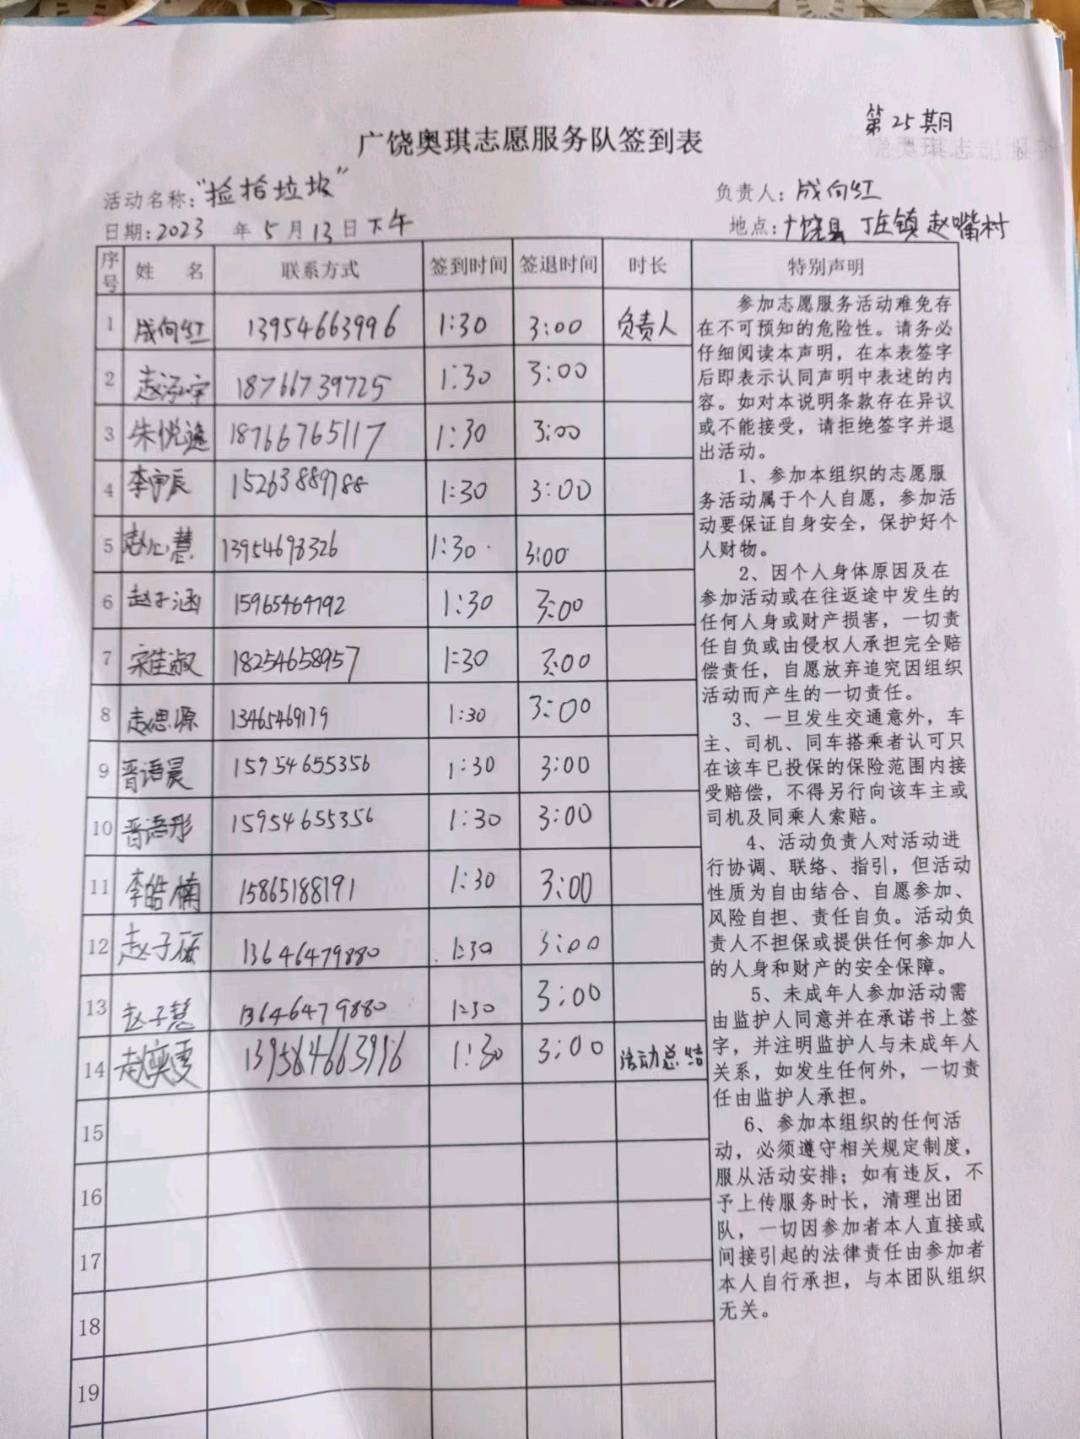 第25期
广饶奥琪志愿服务队签到表
活动名称:"捡拾垃圾" 负责人:成向红
日期:2023 年 5 月 13 日下午 地点:广饶县 丁庄镇 赵嘴村
序号 姓 名 联系方式 签到时间 签退时间 时长 特别声明
1 成向红 13954663996 1:30 3:00 负责人
2 赵泓宇 18766739725 1:30 3:00
3 朱悦 18766765117 1:30 3:00
4 李 辰 15263889788 1:30 3:00
5 赵心慧 13954698326 1:30 3:00
6 赵子涵 15965464792 1:30 3:00
7 宋佳淑 18254658957 1:30 3:00
8 赵思源 13465469179 1:30 3:00
9 晋语晨 15954655356 1:30 3:00
10 晋语彤 15954655356 1:30 3:00
11 李皓楠 15865188191 1:30 3:00
12 赵子 13646479880 1:30 3:00
13 赵子慧 13646479880 1:30 3:00
14 赵奕雯 1:30 3:00 活动总结
15
16
17
18
19
参加志愿服务活动难免存
在不可预知的危险性。请务必
仔细阅读本声明，在本表签字
后即表示认同声明中表述的内
容。如对本说明条款存在异议
或不能接受，请拒绝签字并退
出活动。
1、参加本组织的志愿服
务活动属于个人自愿，参加活
动要保证自身安全，保护好个
人财物。
2、因个人身体原因及在
参加活动或在往返途中发生的
任何人身或财产损害，一切责
任自负或由侵权人承担完全赔
偿责任，自愿放弃追究因组织
活动而产生的一切责任。
3、一旦发生交通意外，车
主、司机、同车搭乘者认可只
在该车已投保的保险范围内接
受赔偿，不得另行向该车主或
司机及同乘人索赔。
4、活动负责人对活动进
行协调、联络、指引，但活动
性质为自由结合、自愿参加、
风险自担、责任自负。活动负
责人不担保或提供任何参加人
的人身和财产的安全保障。
5、未成年人参加活动需
由监护人同意并在承诺书上签
字，并注明监护人与未成年人
关系，如发生任何外，一切责
任由监护人承担。
6、参加本组织的任何活
动，必须遵守相关规定制度，
服从活动安排；如有违反，不
予上传服务时长，清理出团
队，一切因参加者本人直接或
间接引起的法律责任由参加者
本人自行承担，与本团队组织
无关。